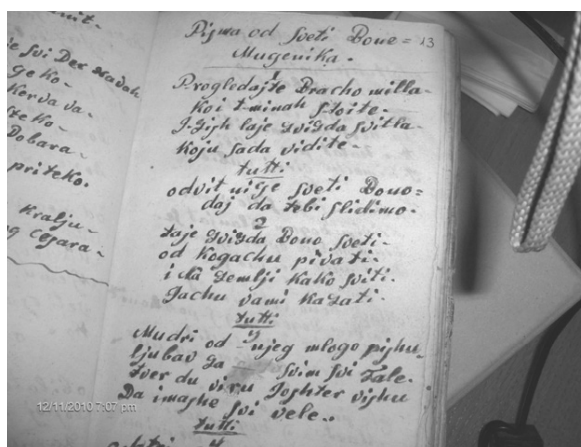 nit.
e Svi Dex Nadah
ge ko.
Kerva va.
ste Ko.
Dobara.
priteko.
Kralju.
og Cesara.
Pisma od Sveti Bone = 13
Mugenika.
1
Progledajte Bracho milla.
Koi t-minah stoite.
I-Zijh laje zvizda svitla.
Koju sada vidite.
tutti
odvit nigje sveti Bono=
daj da tebi slidimo.
2
taje zvizda Bono sveti.
od kogachu pivati.
i Na zemlji Kako sviti.
Jachu vami Kazati.
tutti
3
Mudri od njeg mlogo pishu,
ljubav ga svim svi fale.
tver du viru Joshter vishu
Da imashe svi vele..
tutti
4
12/11/2010 7:07 pm